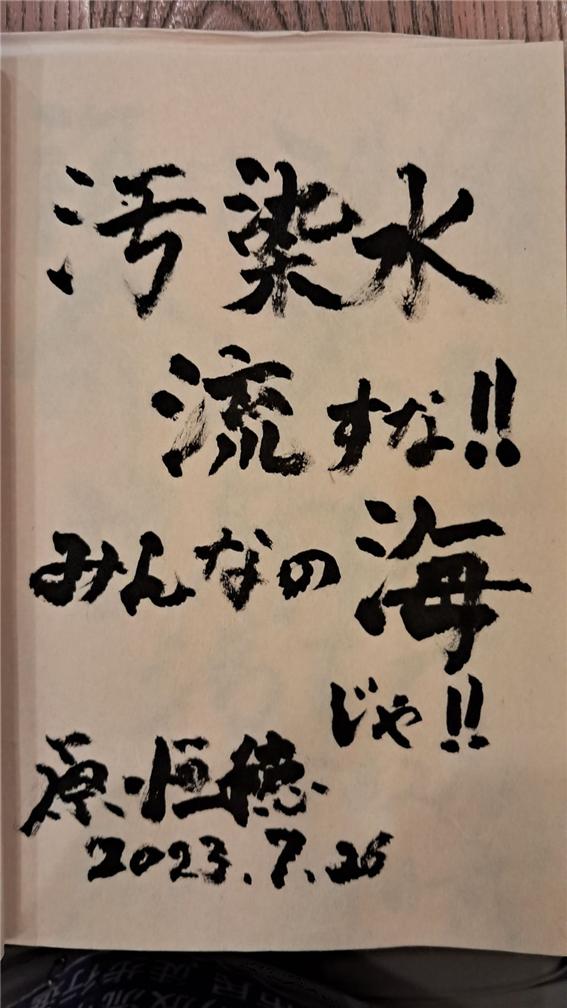 汚染水
流すな!!
みんなの海
じゃ!!
原・恒穂
2023.7.26